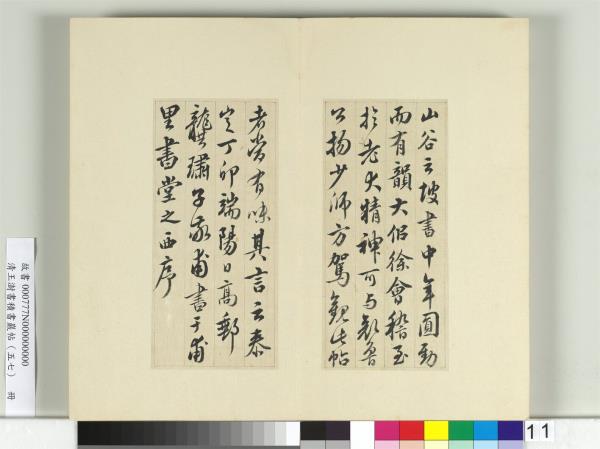 山谷云坡書中年圓勁
而有韻大侣徐會稽至
於老大精神可与顔魯
公楊少師方駕觀此帖
者當有味其言云泰
定丁卯端陽日高郵
龔璛子敬甫書于甫
里書堂之西序
故書 000777N000000000
清王澍書積書巖帖(五七) 冊
11